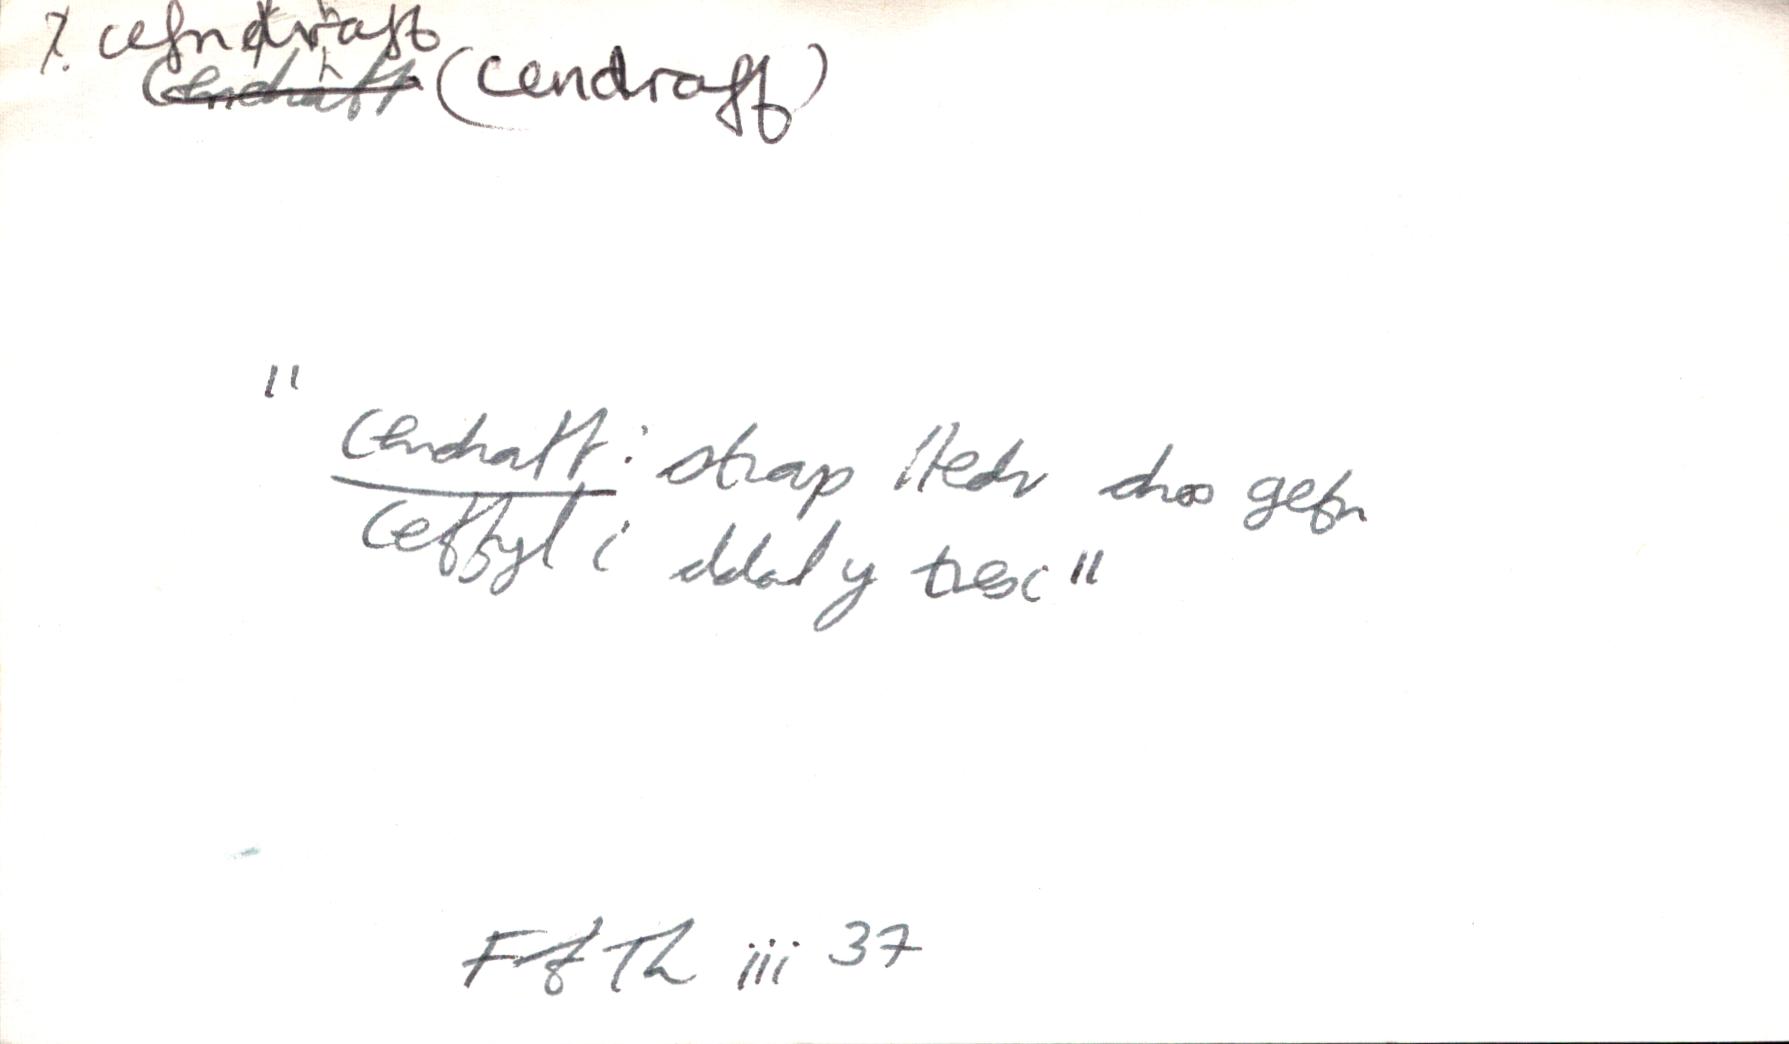 % cefndraff
Cendraff (cendraff)
" Cendraff: strap lledr dros gefn
ceffyl i ddal y tresi "
Ff Th iii 37